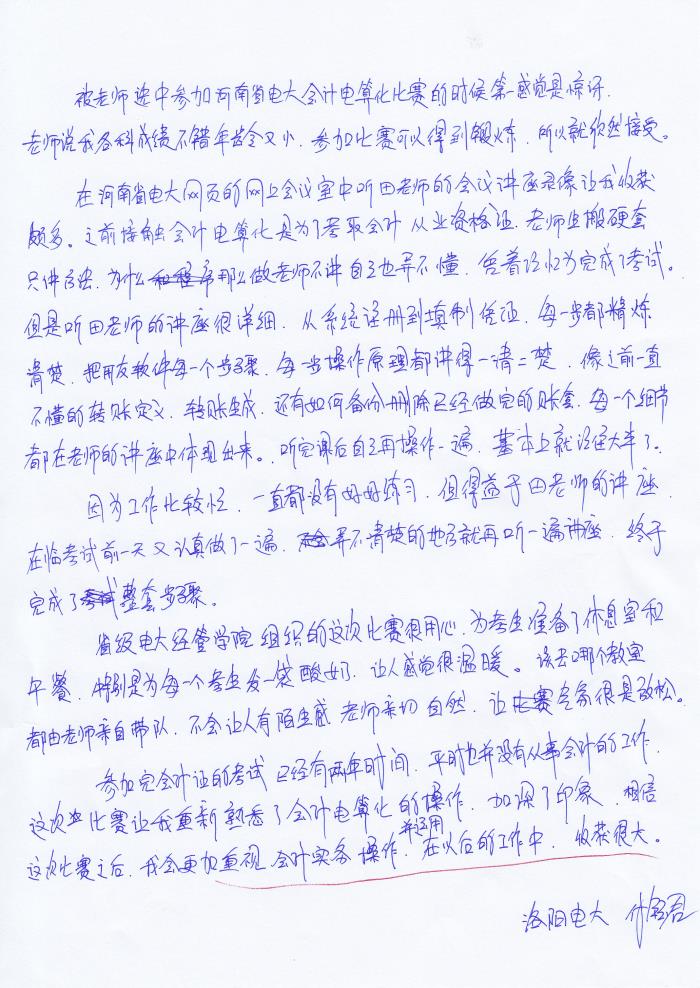 被老师选中参加河南省电大会计电算化比赛的时候第一感觉是惊讶.
老师说我各科成绩不错年龄又小.参加比赛可以得到锻炼.所以就欣然接受。
在河南省电大网页的网上会议室中听田老师的会议讲座录像让我收获
颇多。之前接触会计电算化是为了考取会计从业资格证.老师生搬硬套
只讲方法.为什么那么做老师不讲自己也弄不懂.凭着记忆力完成了考试。
但是听田老师的讲座很详细.从系统注册到填制凭证.每一步都精炼
清楚.把用友软件每一个步骤.每一步操作原理都讲得一清二楚.像之前一直
不懂的转账定义.转账生成.还有如何备份删除已经做完的账套.每一个细节
都在老师的讲座中体现出来。听完课后自己再操作一遍.基本上就记住大半了。
因为工作比较忙.一直都没有好好练习.但得益于田老师的讲座.
在临考试前一天又认真做了一遍.弄不清楚的地方就再听一遍讲座.终于
完成了整套步骤。
省级电大经管学院组织的这次比赛很用心.为考生准备了休息室和
午餐.特别是为每一个考生发一袋酸奶.让人感觉很温暖。该去哪个教室
都由老师亲自带队.不会让人有陌生感 老师亲切自然.让大家很是放松。
参加完会计证的考试已经有两年时间.平时也并没有从事会计的工作.
这次比赛让我重新熟悉了会计电算化的操作.加深了印象.相信
这次比赛之后.我会更加重视会计实务操作.并运用在以后的工作中.收获很大。
洛阳电大